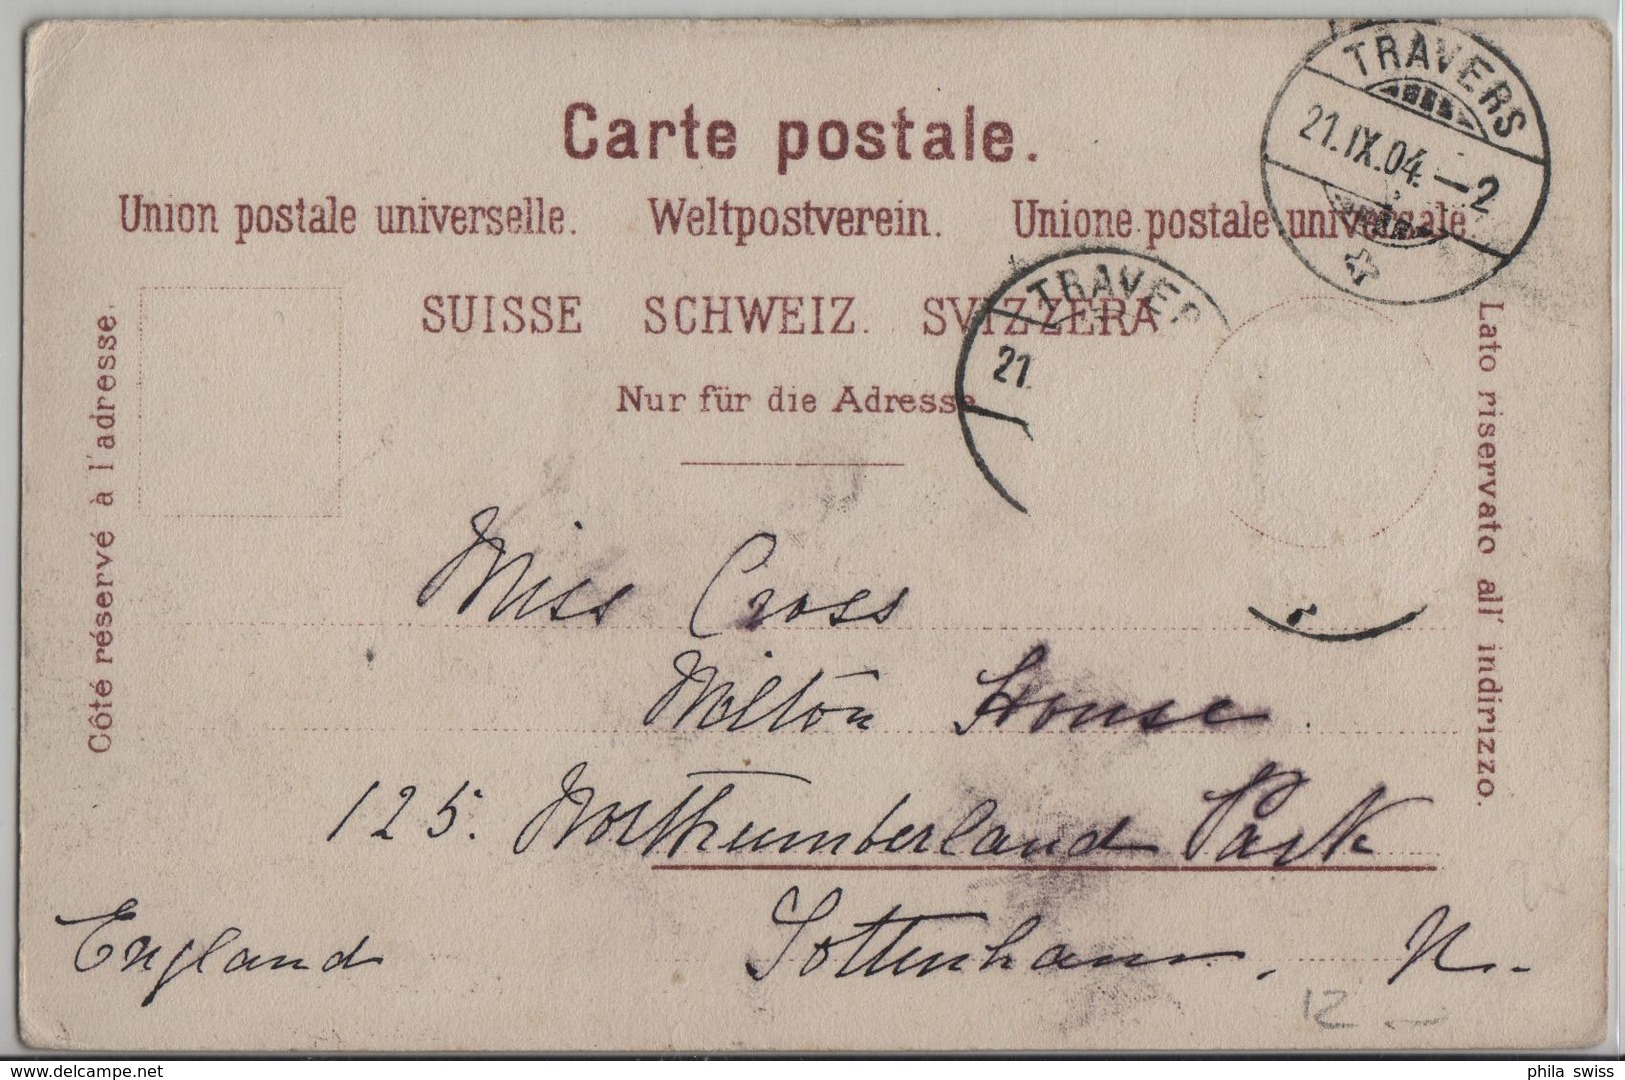 TRAVERS
21.IX.04.–2
Carte postale.
Union postale universelle. Weltpostverein. Unione postale universale.
SUISSE SCHWEIZ. SVIZZERA
TRAVER
21.
Nur für die Adresse
Côté réservé à l'adresse.
Lato riservato all' indirizzo.
Miss Cross
Milton House.
125. Northumberland Park
Tottenham. N.
England
12.–
delcampe.net
phila_swiss